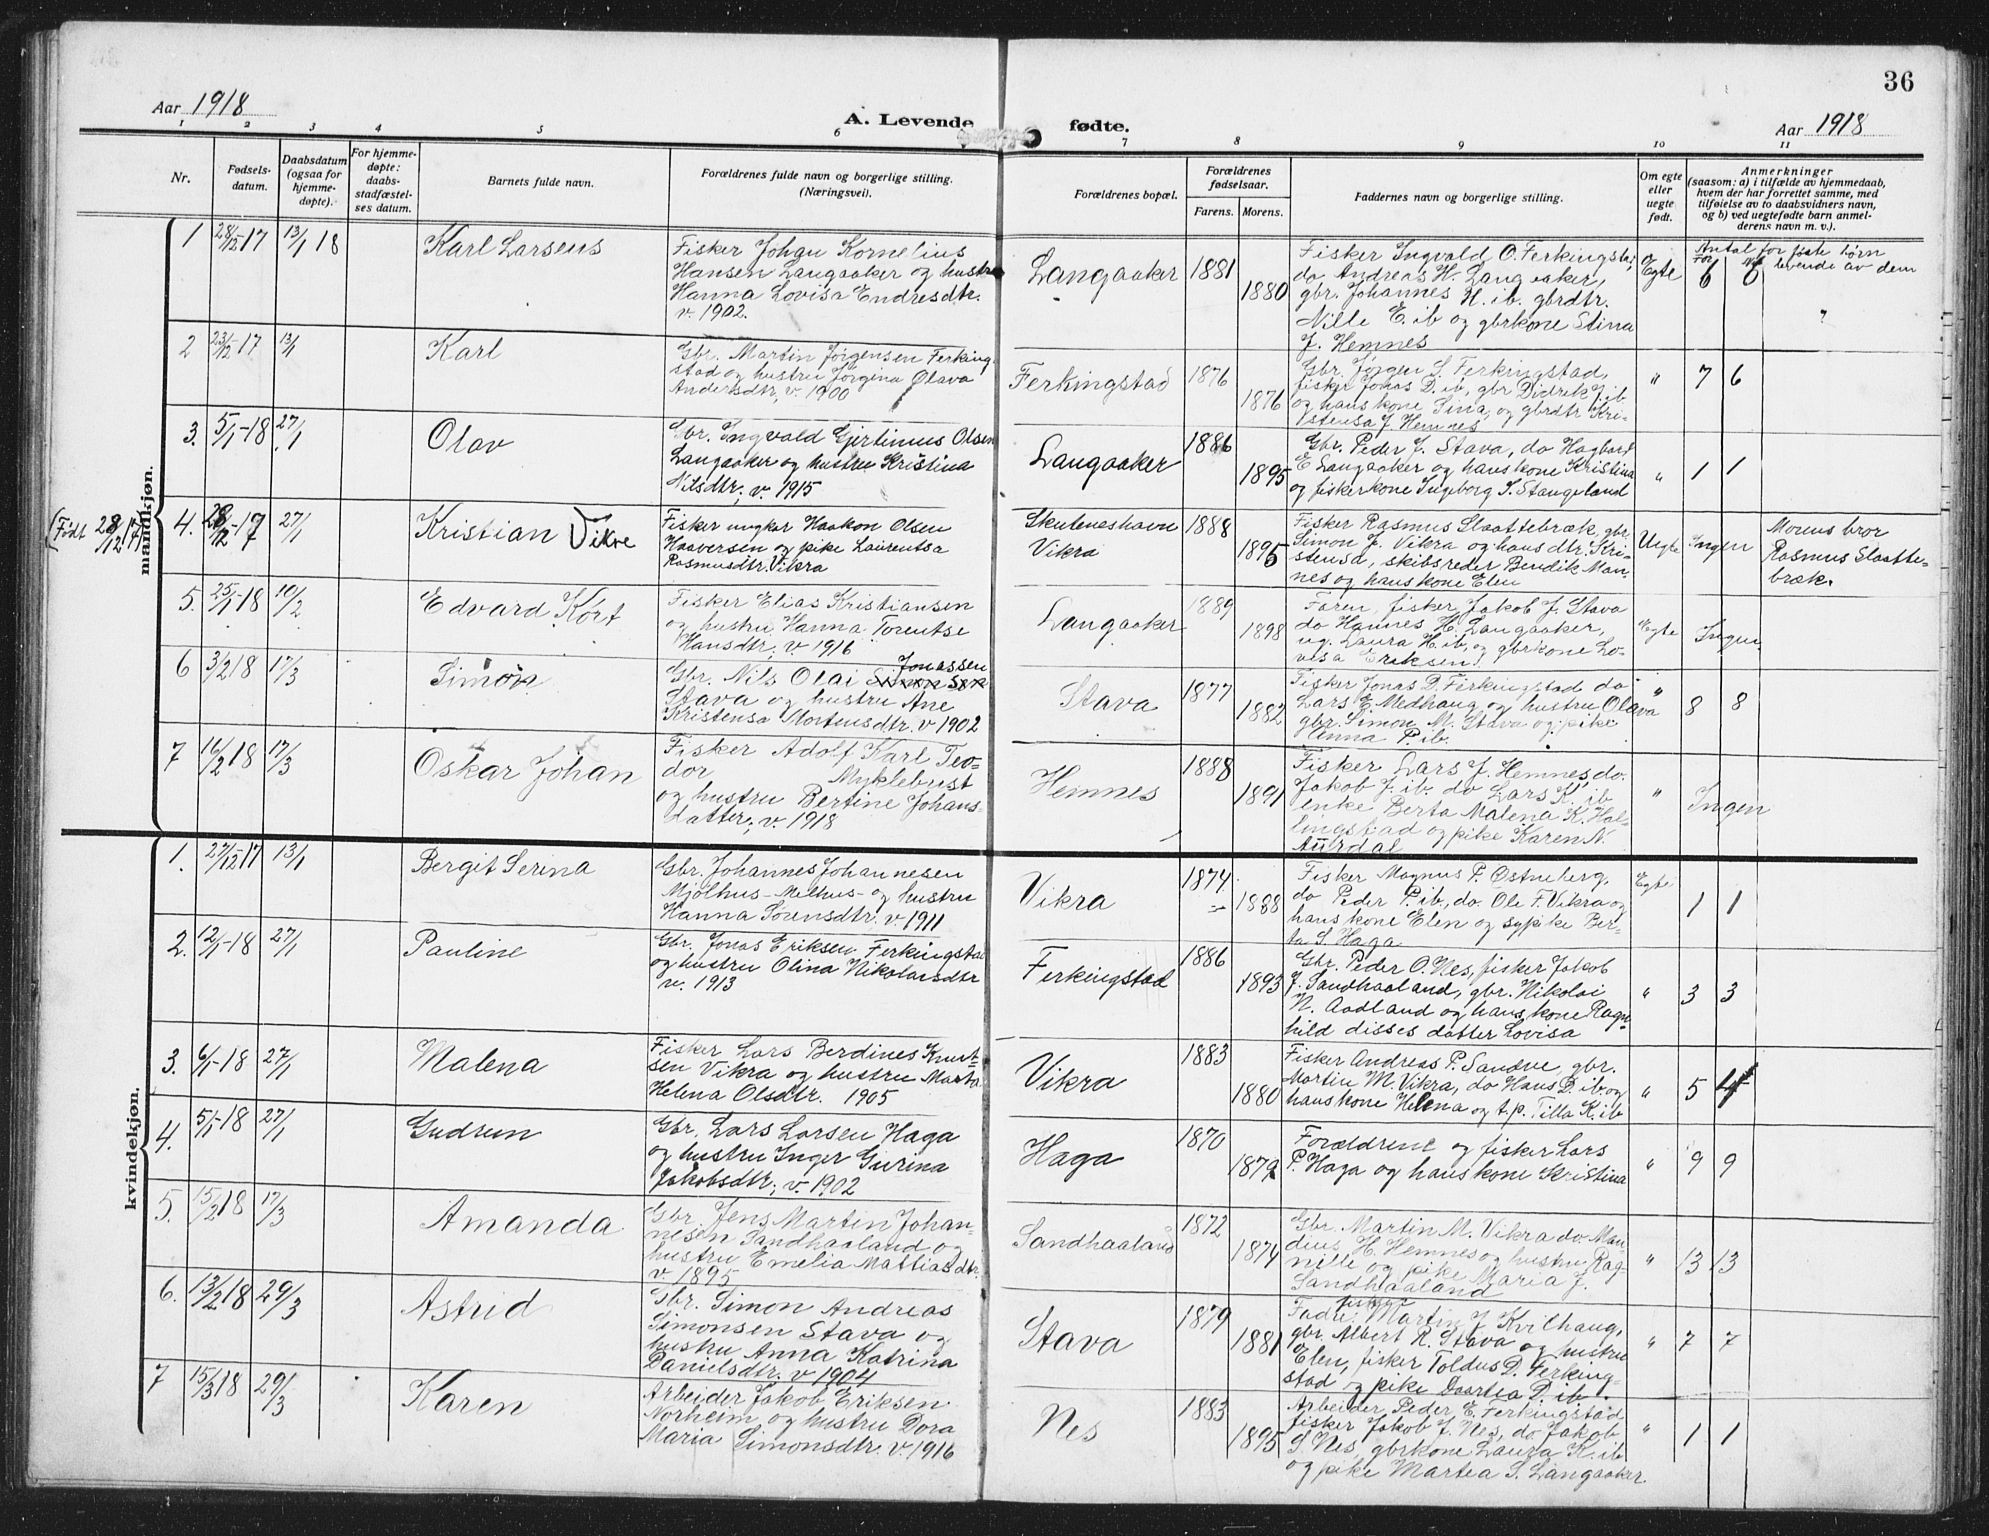 36
Aar 1918
A. Levende fødte.
Aar 1918
1 2 3 4 5 6 7 8 9 10 11
Nr.
Fødsels-
datum.
Daabsdatum
(ogsaa for
hjemme-
døpte).
For hjemme-
døpte:
daabs-
stadfæstel-
ses datum.
Barnets fulde navn.
Forældrenes fulde navn og borgerlige stilling.
(Næringsvei).
Forældrenes bopæl.
Forældrenes
fødselsaar.
Farens. Morens.
Faddernes navn og borgerlige stilling.
Om egte
eller
uegte
født.
Anmerkninger
(saasom: a) i tilfælde av hjemmedaab,
hvem der har forrettet samme, med
tilføielse av to daabsvidners navn,
og b) ved uegtefødte barn anmel-
derens navn m. v.).
mandkjøn.
1 28/12-17 13/1 18 Karl Larsens
Fisker Johan Kornelius
Hansen Langaaker og hustru
Hanna Lovisa Endresdtr.
v. 1902.
Langaaker 1881 1880
Fisker Ingvald O. Ferkingstad
do Andreas H. Langaaker,
gbr. Johannes H. ib. gbrdtr.
Nille E. ib og gbrkone Stina
J. Hemnes
Egte
Antal før føste børn
levende av dem
6 6
2 23/12-17 13/1 Karl
Gbr. Martin Jørgensen Ferking-
stad og hustru Jørgina Olava
Andersdtr, v. 1900
Ferkingstad 1876 1876
Gbr. Jørgen S. Ferkingstad,
fisker Jonas D. ib, gbr Didrik J. ib
og hans kone Sina, og gbrdtr Kri-
stensa J. Hemnes
" 7 6
3. 5/1-18 27/1 Olav
Gbr. Ingvald Gjertinius Olsen
Langaaker og hustru Kristina
Nilsdtr; v. 1915
Langaaker 1886 1895
Gbr. Peder J. Stava, do Hagbart
E Langaaker og hans kone Kristina
og fiskerkone Ingeborg S. Stangeland
" 1 1
(Født 28/12 17)
4. 28/12-17 27/1 Kristian Vikre
Fisker ungkar Haakon Olsen
Haaversen og pike Laurentsa
Rasmusdtr. Vikra
Skuteneshavn
Vikra
1888 1895
Fisker Rasmus Slaattebræk, gbr.
Simon J. Vikra og hans dtr. Kri-
stensa, skibsreder Bendik Man-
nes og hans kone Elen
Uegte Ingen
Morens bror
Rasmus Slaatte-
bræk.
5. 25/1-18 10/2 Edvard Kort
Fisker Elias Kristiansen
og hustru Hanna Torentse
Hansdtr, v 1916
Langaaker 1889 1898
Faren, fisker Jakob J. Stava
do Hannes H. Langaaker,
ug. Laura H. ib, og gbrkone Lo-
visa Eriksen
Egte Ingen
6 3/2 18 17/3 Simon
Gbr. Nils Olai Jonassen
Stava og hustru Ane
Kristensa Mortensdtr. v 1902
Stava 1877 1882
Fisker Jonas D. Ferkingstad do
Lars E. Medhaug og hustru Olava
gbr. Simon M. Stava og pike
Anna P. ib.
" 8 8
7 16/2 18 17/3 Oskar Johan
Fisker Adolf Karl Teo-
dor Myklebust
og hustru Bertine Johans-
datter; v. 1918
Hemnes 1888 1891
Fisker Lars J. Hemnes do.
Jakob J. ib. do Lars K. ib
enke Berta Malena K. Hal-
lingstad og pike Karen N.
Aurdal
" Ingen
kvindekjøn.
1. 27/12 17 13/1 Bergit Serina
Gbr. Johannes Johannesen
Mjølhus-Melhus- og hustru
Hanna Sørensdtr. v. 1911
Vikra 1874 1888
Fisker Magnus P. Østneberg,
do Peder P. ib, do. Ole F. Vikra og
hans kone Elen og sypike Ber-
ta S. Haga
Egte 1 1
2. 12/1-18 27/1 Pauline
Gbr. Jonas Eriksen Ferkingstad
og hustru Olina Nikolaisdtr
v. 1913
Ferkingstad 1886 1893
Gbr. Peder O. Nes, fisker Jakob
J. Sandhaaland, gbr. Nikolai
N. Aadland og hans kone Ragn-
hild disses datter Lovisa
" 3 3
3. 6/1-18 27/1 Malena
Fisker Lars Berdines Knut-
sen Vikra og hustru Marta
Helena Olsdtr. 1905
Vikra 1883 1880
Fisker Andreas P. Sandve, gbr.
Martin M. Vikra, do Hans D. ib. og
hans kone Helena og t.p. Tilla K. ib
" 5 4
4. 5/1-18 27/1 Gudrun
Gbr. Lars Larsen Haga
og hustru Inger Gurina
Jakobsdtr; v. 1902
Haga 1870 1879
Forældrene og fisker Lars
P. Haga og hans kone Kristina
" 9 9
5. 15/2 18 17/3 Amanda
Gbr. Jens Martin Johan-
nesen Sandhaaland og
hustru Emelia Mattiasdtr.
v. 1895
Sandhaaland 1872 1874
Gbr. Martin M. Vikra do Man-
dius H. Hemnes og hustru Rag-
nille og pike Maria J.
Sandhaaland
" 13 13
6. 13/2 18 29/3 Astrid
Gbr. Simon Andreas
Simonsen Stava og
hustru Anna Katrina
Danielsdtr. v 1904
Stava 1879 1881
fisker Martin J. Kvilhaug,
gbr. Albert R. Stava og hustru
Elen, fisker Toldus D. Ferking-
stad og pike Daartea D. ib.
" 7 7
7 15/3 18 29/3 Karen
Arbeider Jakob Eriksen
Norheim og hustru Dora
Maria Simonsdtr. v. 1916
Nes 1883 1895
Arbeider Peder E. Ferkingstad,
fisker Jakob J. Nes, do Jakob
S. Nes, gbrkone Laura K. ib
og pike Martea S. Langaaker.
" 1 1